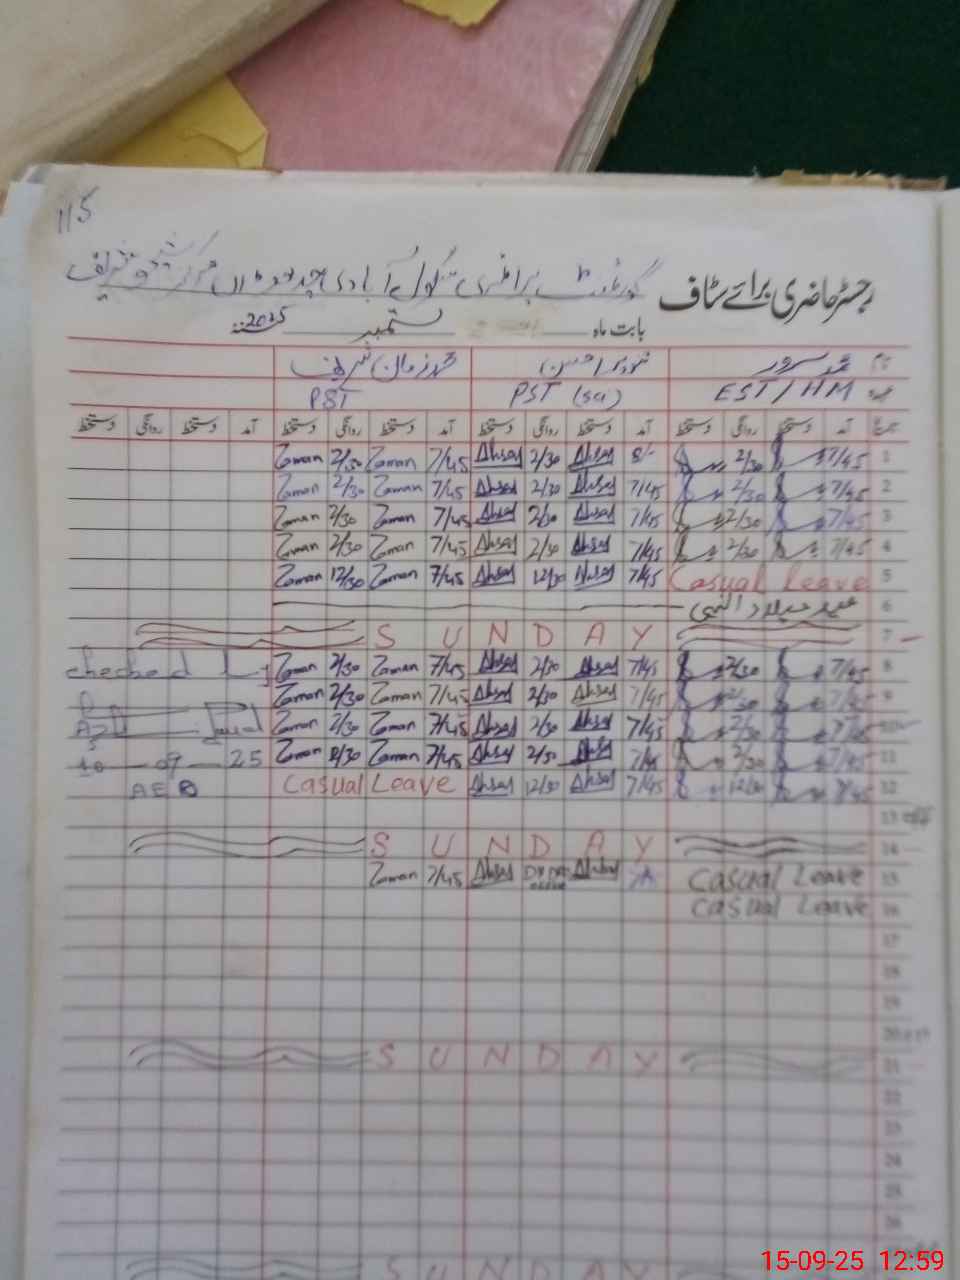 115
رجسٹر حاضری برائے سٹاف
گورنمنٹ پرائمری سکول آبادی
بابت ماہ ستمبر 2025ء
نام محمد سرور محمد زمان شریف
عہدہ EST/HM PST (sci) PST
تاریخ آمد دستخط روانگی دستخط آمد دستخط روانگی دستخط آمد دستخط روانگی دستخط آمد دستخط روانگی دستخط
Zaman 2/30 Zaman 7/45 Ahsan 2/30 Ahsan 8/- 2/30 7/45 1
Zaman 2/30 Zaman 7/45 Ahsan 2/30 Ahsan 7/45 2/30 7/45 2
Zaman 2/30 Zaman 7/45 Ahsan 2/30 Ahsan 7/45 2/30 7/45 3
Zaman 2/30 Zaman 7/45 Ahsan 2/30 Ahsan 7/45 2/30 7/45 4
Zaman 12/30 Zaman 7/45 Ahsan 12/30 Ahsan 7/45 Casual Leave 5
عید میلاد النبی 6
SUNDAY 7
checked Zaman 2/30 Zaman 7/45 Ahsan 2/30 Ahsan 7/45 2/30 7/45 8
Zaman 2/30 Zaman 7/45 Ahsan 2/30 Ahsan 7/45 2/30 7/45 9
Zaman 2/30 Zaman 7/45 Ahsan 2/30 Ahsan 7/45 2/30 7/45 10
10-09-25 Zaman 2/30 Zaman 7/45 Ahsan 2/30 Ahsan 7/45 2/30 7/45 11
AEO Casual Leave Ahsan 12/30 Ahsan 7/45 12/30 7/45 12
13 off
SUNDAY 14
Zaman 7/45 Ahsan Ahsan Casual Leave 15
Casual Leave 16
17
18
19
20
SUNDAY 21
22
23
24
25
26
SUNDAY
15-09-25 12:59